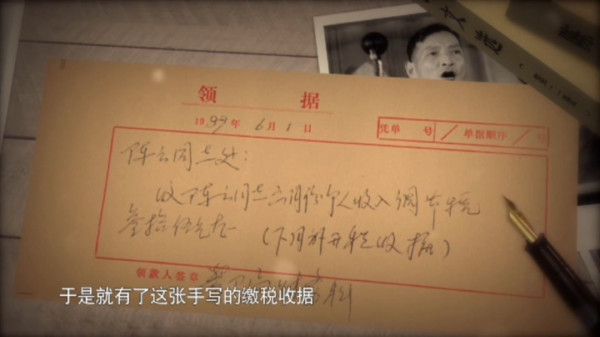 领 据
1989年 6月 1日
凭单 号 / 单据顺序 / 号
陈云同志处:
收陈云同志六月份个人收入调节税
叁拾伍元正 (下月补开税收据)
领款人签章
于是就有了这张手写的缴税收据